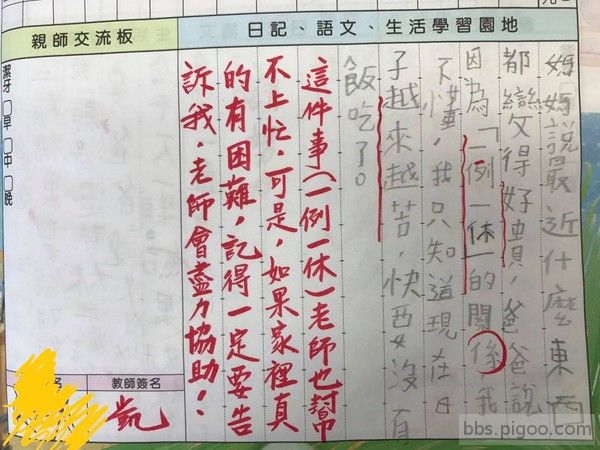 日記、語文、生活學習園地
親師交流板
媽媽說最近什麼東西
都變得好貴，爸爸說
因為「一例一休」的關係我
不懂，我只知道現在日
子越來越苦，快要沒有
飯吃了。
這件事(一例一休)老師也幫
不上忙，可是，如果家裡真
的有困難，記得一定要告
訴我，老師會盡力協助！
潔牙 □早 □中 □晚
名
教師簽名
凱
bbs.pigoo.com